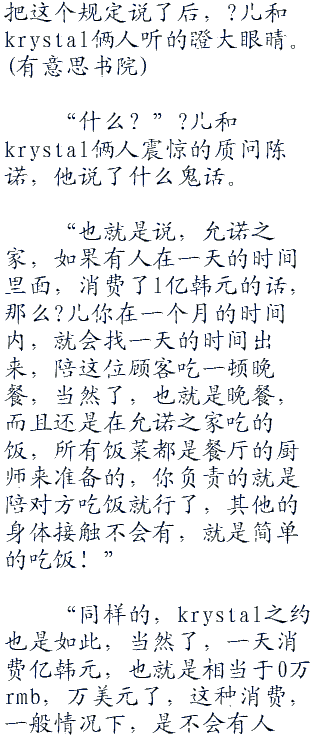 把这个规定说了后，?儿和
krystal俩人听的瞪大眼睛。
(有意思书院)
“什么？”?儿和
krystal俩人震惊的质问陈
诺，他说了什么鬼话。
“也就是说，允诺之
家，如果有人在一天的时间
里面，消费了1亿韩元的话，
那么?儿你在一个月的时间
内，就会找一天的时间出
来，陪这位顾客吃一顿晚
餐，当然了，也就是晚餐，
而且还是在允诺之家吃的
饭，所有饭菜都是餐厅的厨
师来准备的，你负责的就是
陪对方吃饭就行了，其他的
身体接触不会有，就是简单
的吃饭！”
“同样的，krystal之约
也是如此，当然了，一天消
费亿韩元，也就是相当于0万
rmb，万美元了，这种消费，
一般情况下，是不会有人